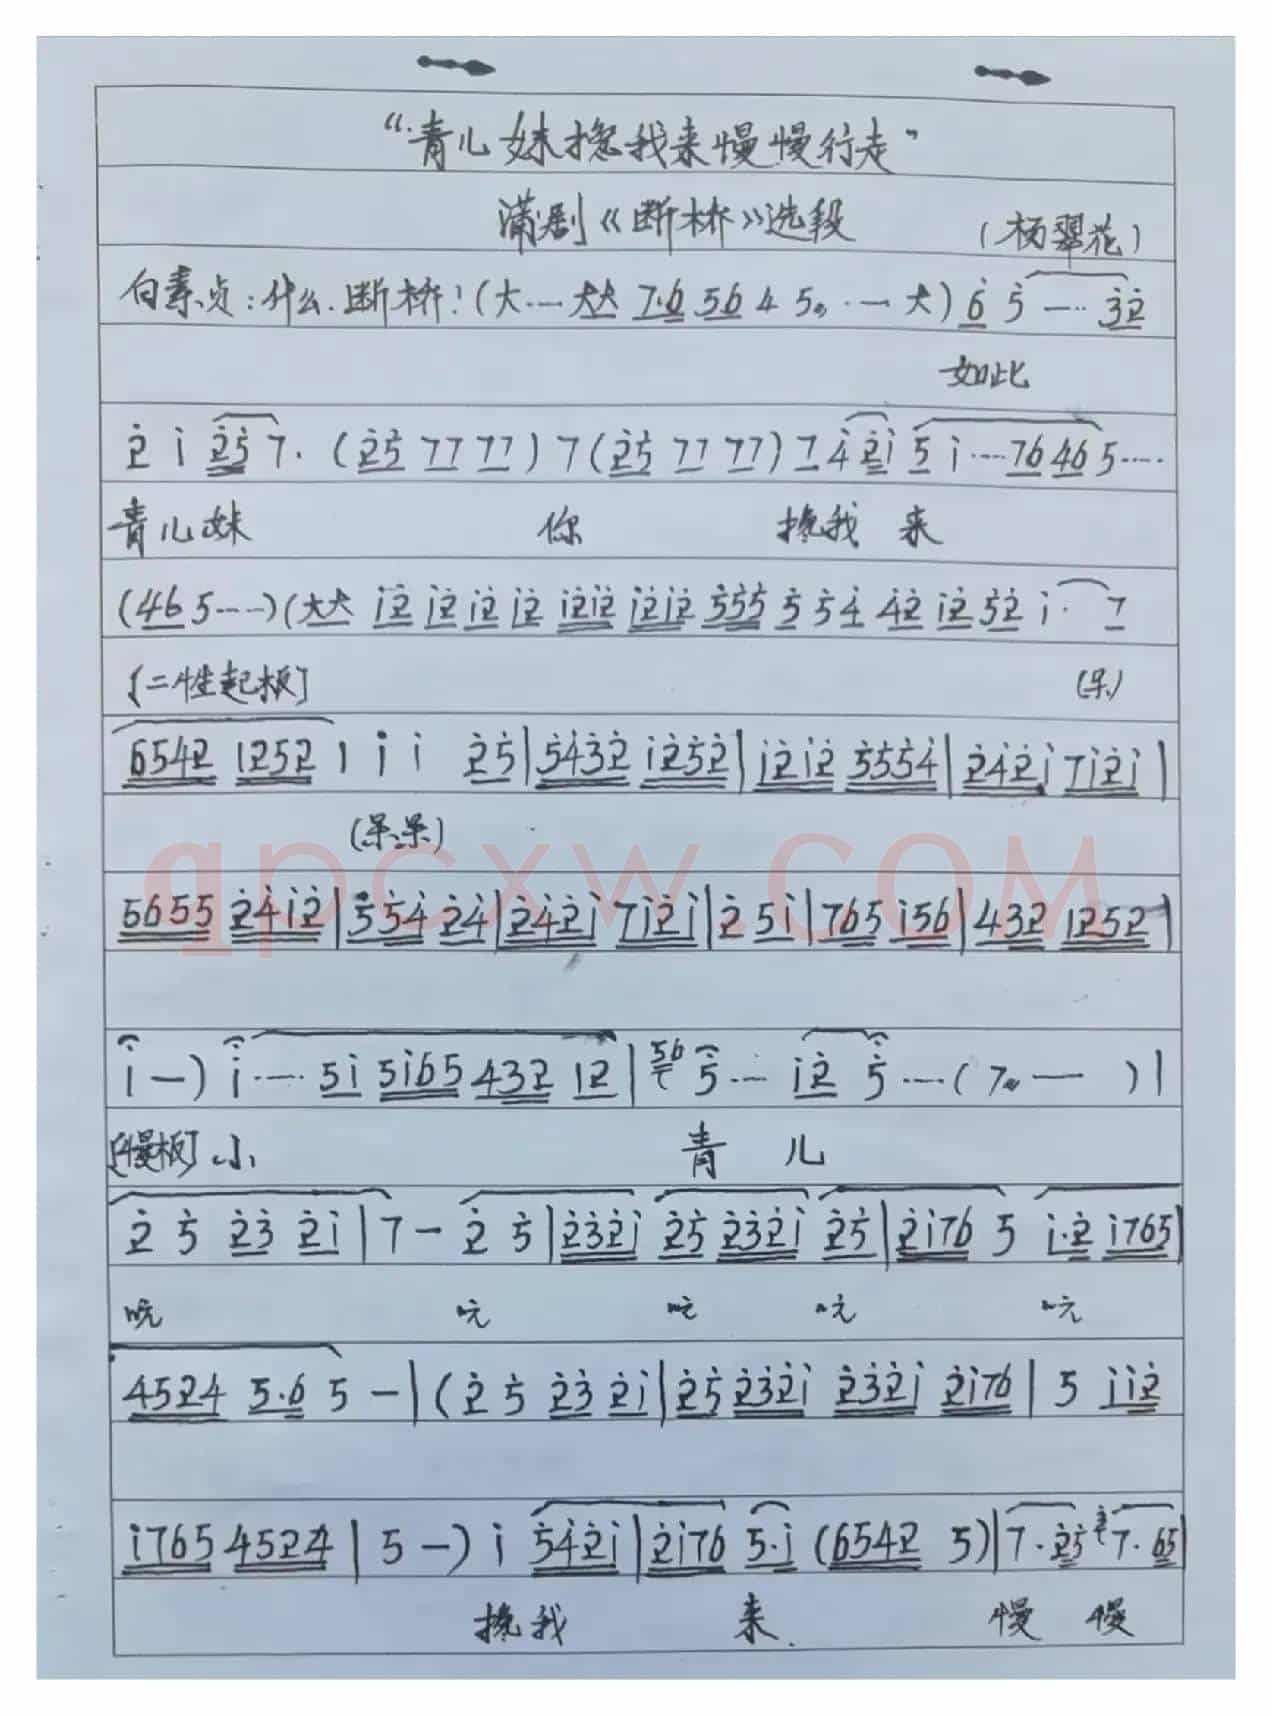 “青儿妹搀我来慢慢行走”
蒲剧《断桥》选段 (杨翠花)
白素贞：什么.断桥！(大·--- 大大 7·6 56 4 5 · 一 大) 6 5 --- 32
如此
2 i 25 7. (25 77 77) 7 (25 77 77) 7 4 2i 5 i ···· 76 46 5····
青儿妹 你 搀我 来
(46 5----) (大大 i2 i2 i2 i2 i2i2 i2i2 555 5 54 42 i2 52 i· 7
[二性起板] (呆)
6542 1252 1 i i 25|5432 i252|i2i2 5554|242i 7i2i|
(呆呆)
5655 24i2|554 24|242i 7i2i|2 5i|765 i56|432 1252|
i—) i···· 5i 5i65 432 12|56 5--- i2 5---( 7 — )|
[慢板] 小 青 儿
2 5 23 2i|7 — 2 5|232i 25 232i 25|2i76 5 i·2 i765|
吭 吭 吭 吭 吭
4524 5·6 5 —|(2 5 23 2i|25 232i 232i 2i76|5 ii2
i765 4524|5 —) i 542i|2i76 5·i (6542 5)|7·25 7·65|
搀我 来 慢 慢
qpcxw.com